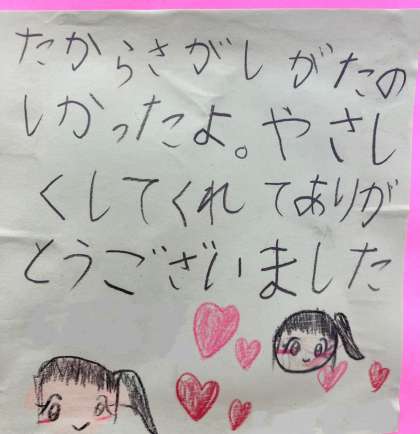 たからさがしがたの
しかったよ。やさし
くしてくれてありが
とうございました